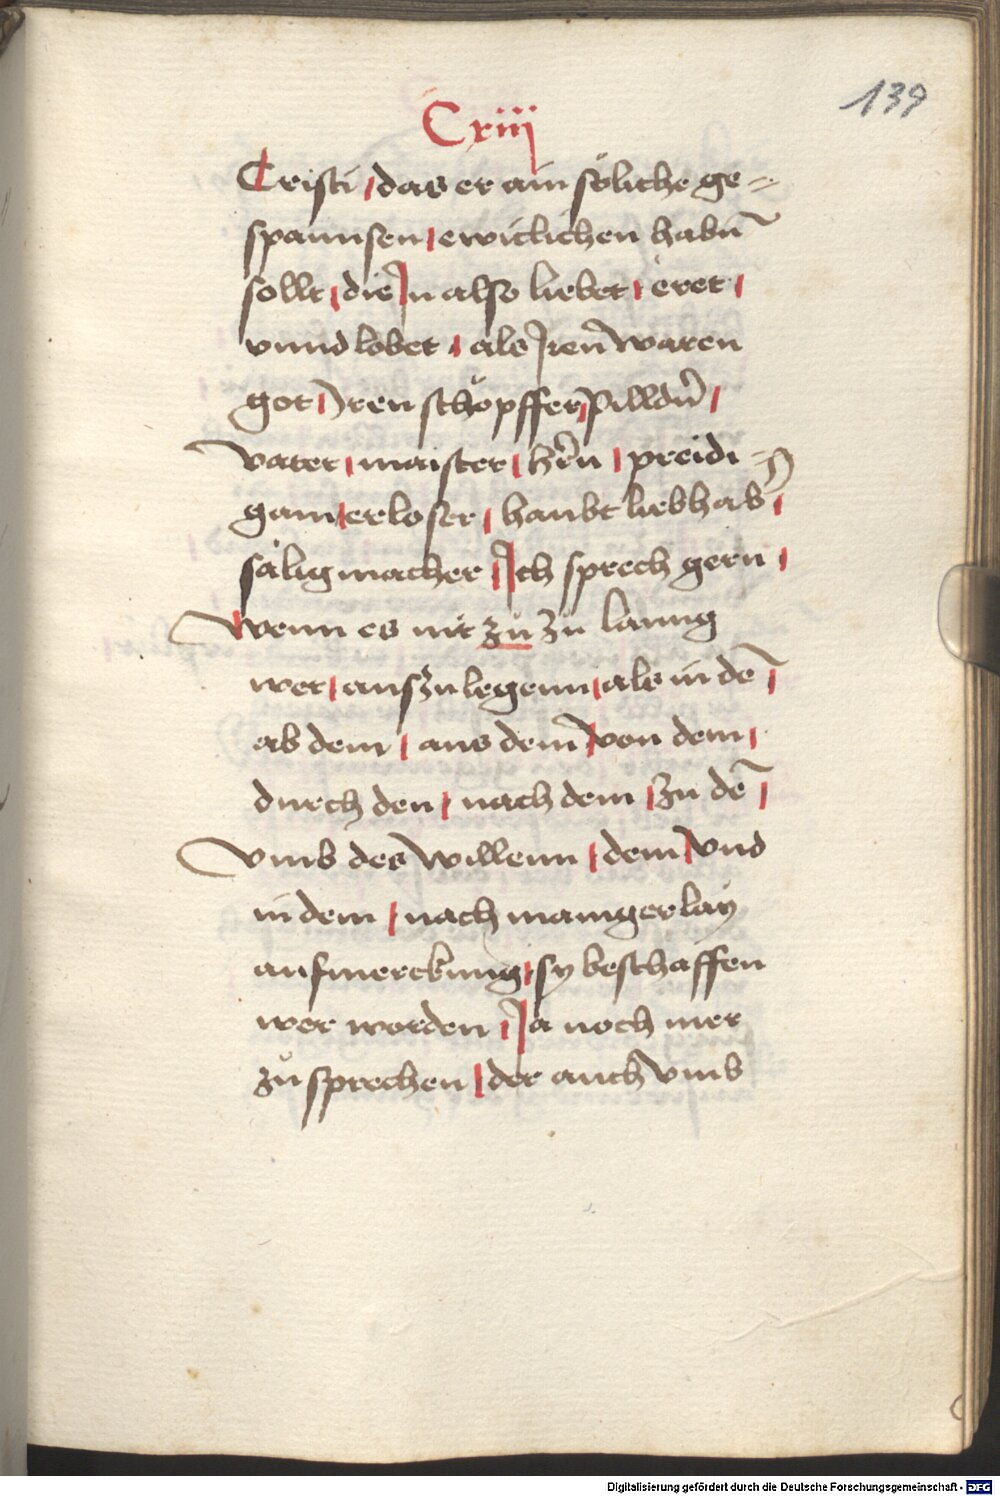 139
Cxiij
Cristi das er ain söliche ge=
spannsen ewiclichen habn̄
sollt die Jn also liebet eret
vnnd lobet als Jren waren
got Jren schöpffer pilldn̄
vater maister hr̄n preidi=
gam erloser haubt liebhab̄
sälig macher Jch sprech gern
wenn es nit zu zu lanng
wer auszulegenn als in dē
ab dem aus dem von dem
durch den nach dem zu dē
vmb des willenn dem vnd
in dem nach maingerlay
aufmerckung sy beschaffen
wer worden Ja noch mer
zů sprechen der auch vmb
Digitalisierung gefördert durch die Deutsche Forschungsgemeinschaft - DFG